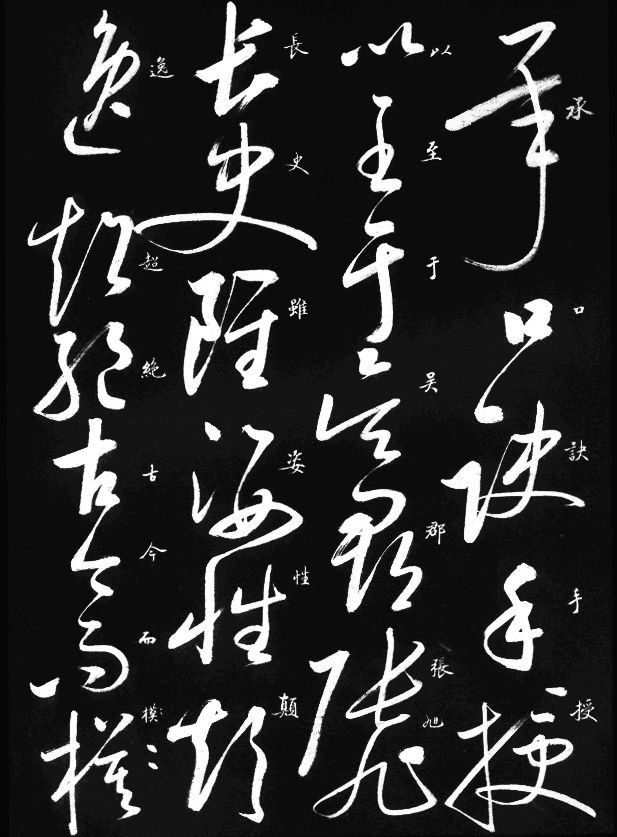 承口訣手授
承口訣手授
以至于吳郡張旭
以至于吳郡張旭
長史雖姿性顛
長史雖姿性顛
逸超絕古今而模
逸超絕古今而模